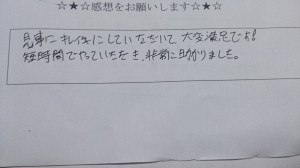 ☆★☆感想をお願いします☆★☆
見事にキレイにしていただいて、大変満足です!
短時間でやっていただき、非常に助かりました。